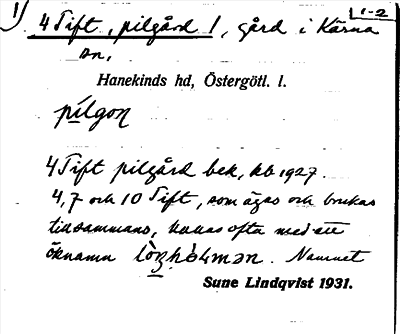 1) 4 Tift, pilgård 1, gård i Kärna 1-2
sn,
Hanekinds hd, Östergötl. l.
pilgon
4 Tift pilgård bek, kb 1927.
4, 7 och 10 Tift, som ägas och brukas
tillsammans, kallas ofta med ett
öknamn Namnet
Sune Lindqvist 1931.